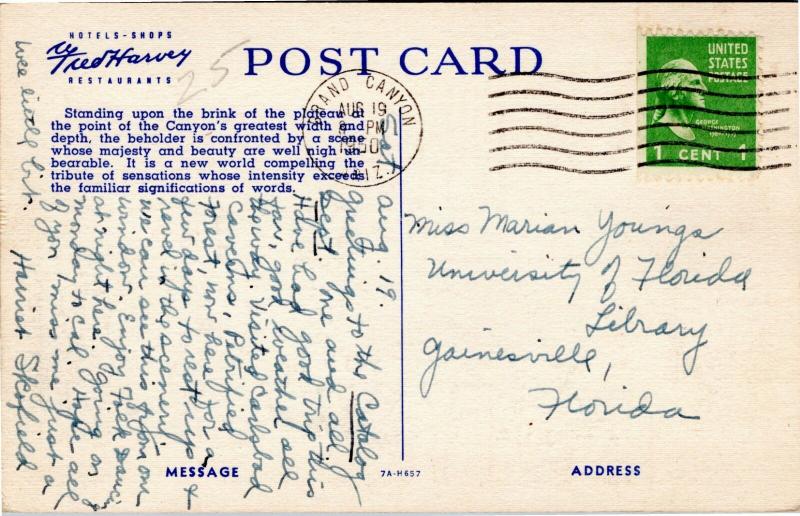 HOTELS - SHOPS
Fred Harvey
RESTAURANTS
25
POST CARD
Standing upon the brink of the plateau at
the point of the Canyon's greatest width and
depth, the beholder is confronted by a scene
whose majesty and beauty are well nigh un-
bearable. It is a new world compelling the
tribute of sensations whose intensity exceeds
the familiar significations of words.
GRAND CANYON
AUG 19
PM
1950
ARIZ.
UNITED
STATES
POSTAGE
GEORGE
WASHINGTON
1 CENT 1
Sat.
Aug. 19.
Greetings to the Catalog
Dept. one and all.
Have had good trip this
far, good weather, all
Howdy. Visited Carlsbad
Caverns, Petrified
Forest, now here for a
few days to rest up &
revel in the scenery.
We can see this from our
window. Enjoy Folk Dancing
at night here. Going on
Monday to Cal. Hope all
of you miss me just a
wee little bit.
Harriet Skofield
Miss Marian Youngs
University of Florida
Library
Gainesville,
Florida
MESSAGE
7A-H657
ADDRESS